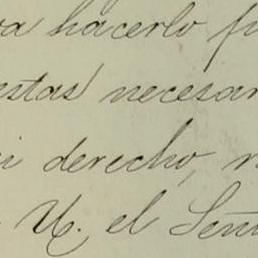 hacerlo
estas necesar
derecho,
U. el Señ